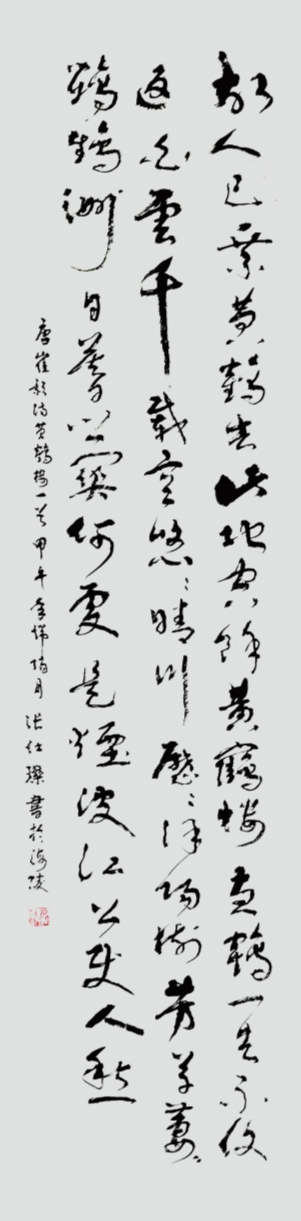 故人已乘黄鶴去此地空餘黄鶴樓黄鶴一去不復
返白雲千載空悠々晴川歷々漢陽樹芳草萋々
鸚鵡洲日暮鄉關何處是煙波江上使人愁
唐崔颢詩黄鶴樓一首甲午月張仕璨書於海陵